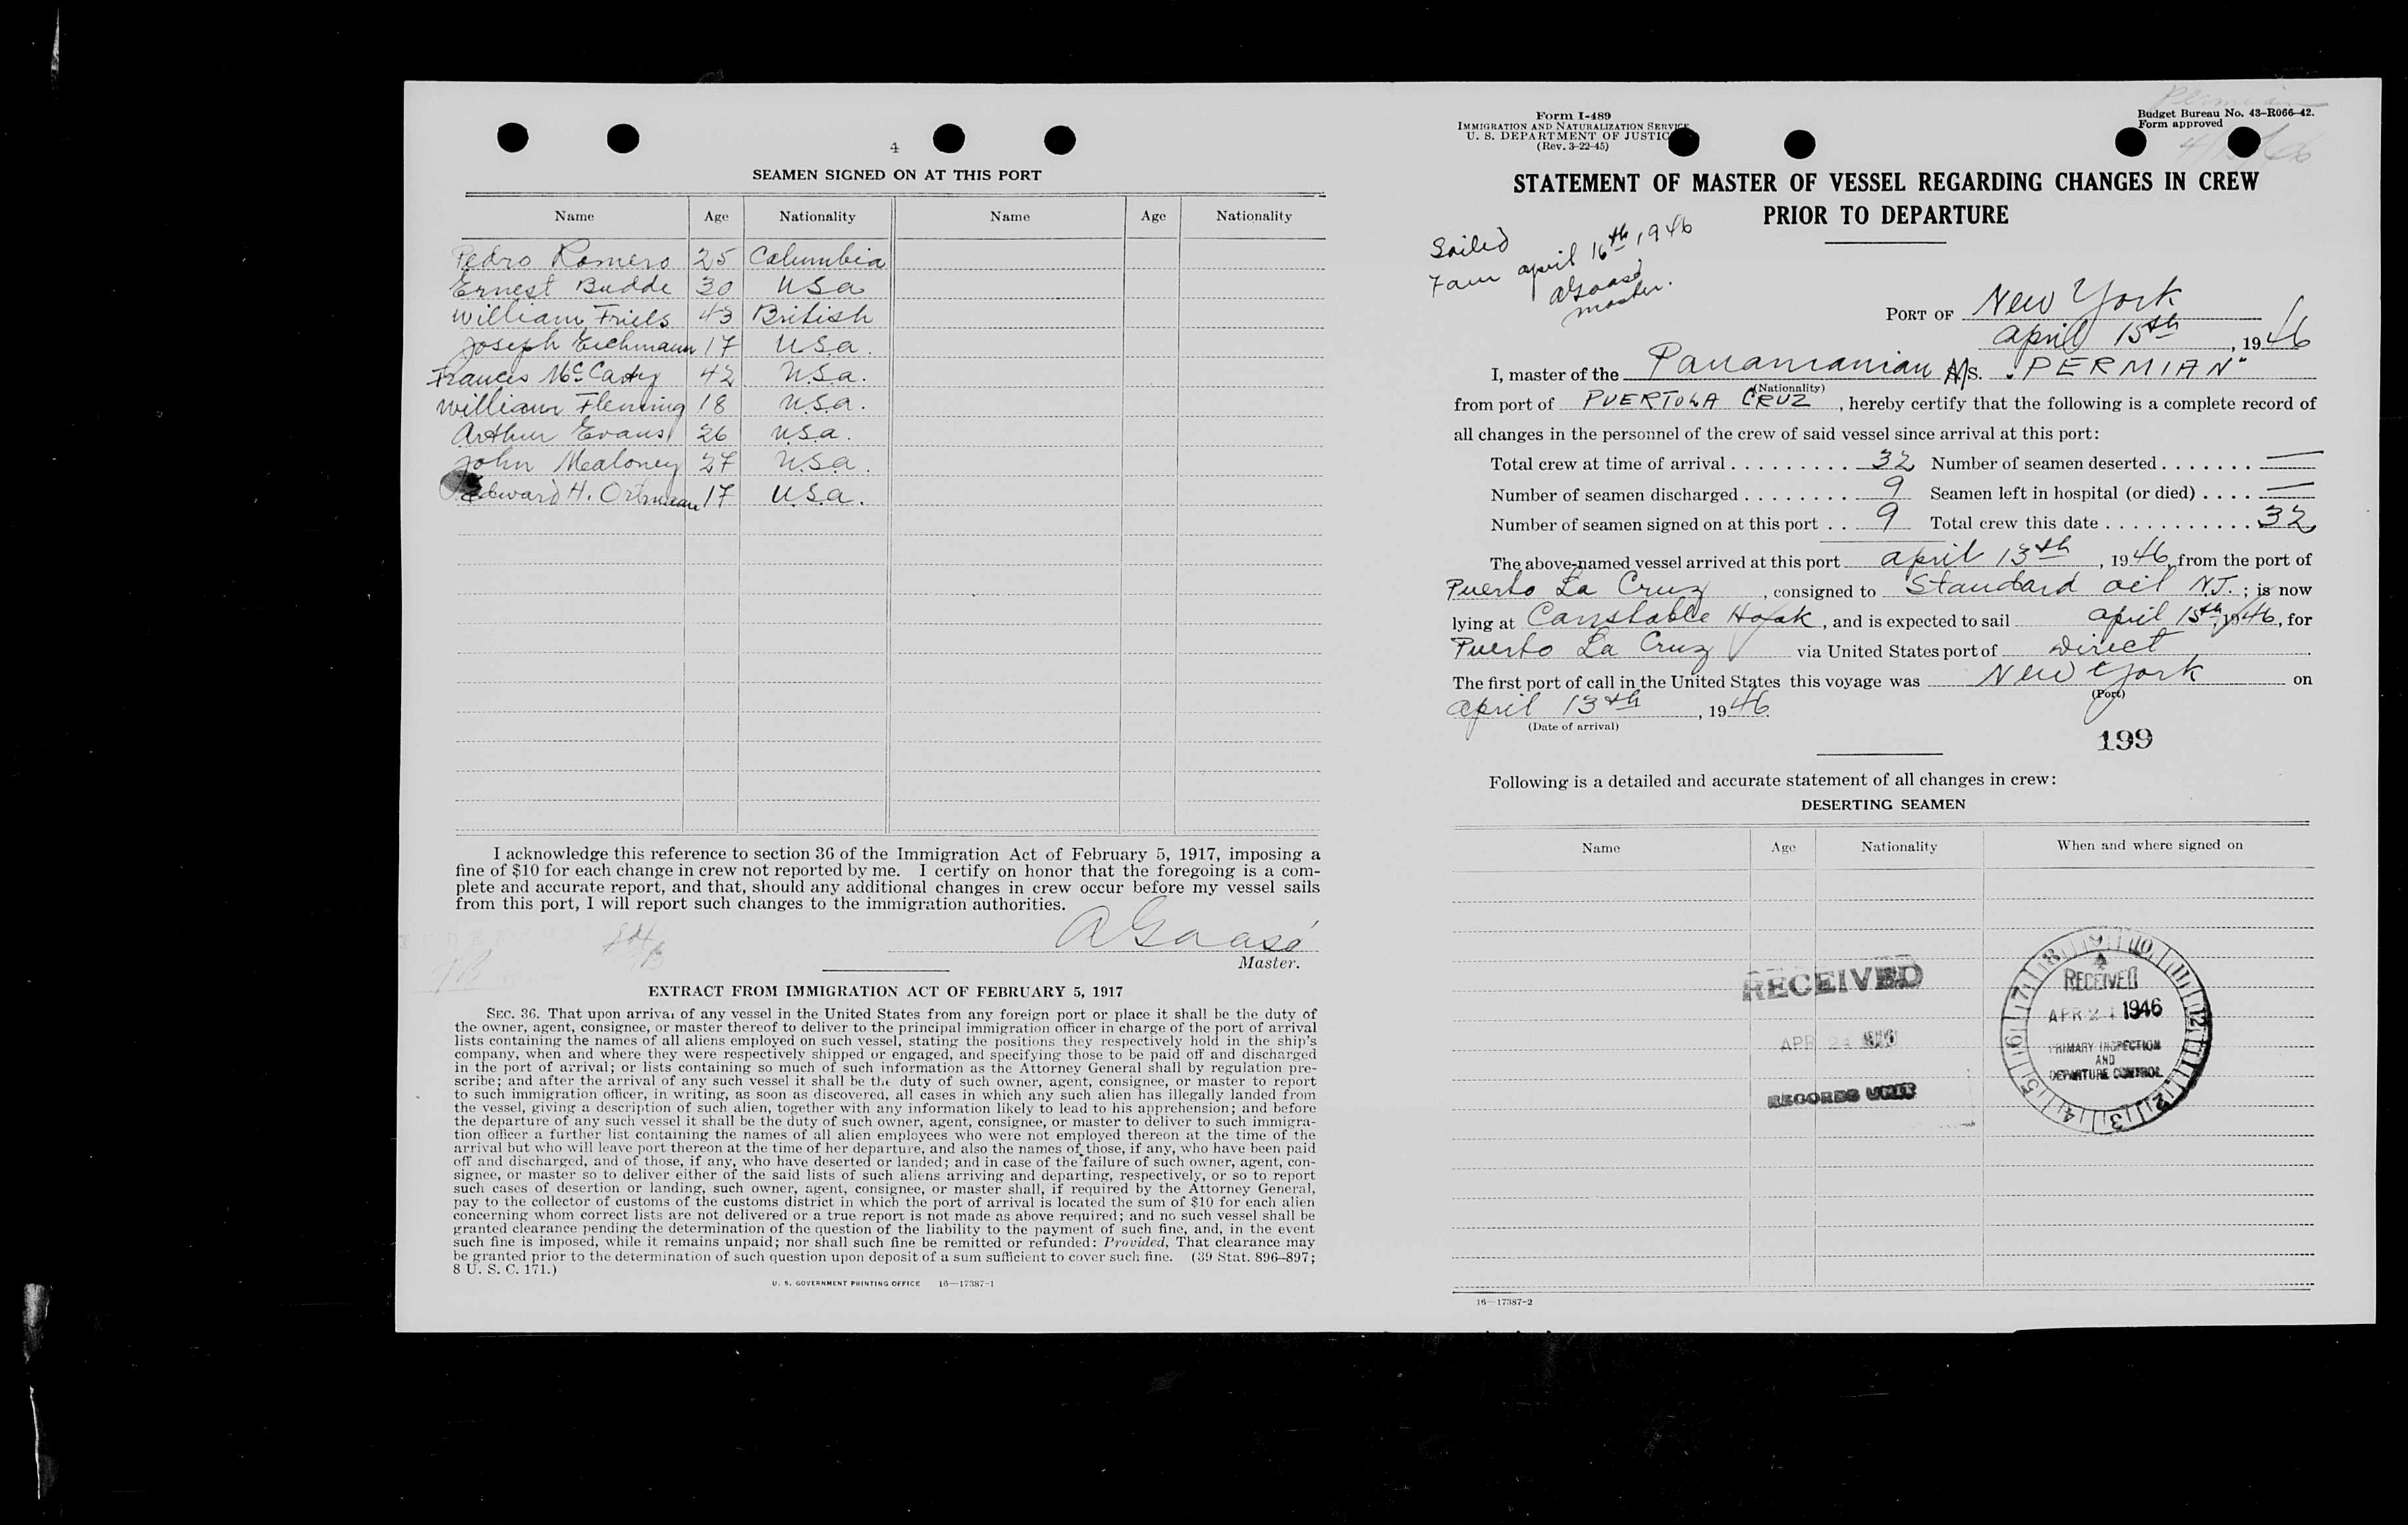 4
SEAMEN SIGNED ON AT THIS PORT
Name Age Nationality Name Age Nationality
Pedro Romero 25 Columbia
Ernest Budde 30 USA
William Friels 43 British
Joseph Eichmann 17 U.S.a.
Francis Mc Carty 42 U.S.a.
William Fleming 18 U.S.a.
Arthur Evans 26 U.S.a.
John Mealoney 27 U.S.a.
Edward H. Ortman 17 U.S.a.
I acknowledge this reference to section 36 of the Immigration Act of February 5, 1917, imposing a
fine of $10 for each change in crew not reported by me. I certify on honor that the foregoing is a com-
plete and accurate report, and that, should any additional changes in crew occur before my vessel sails
from this port, I will report such changes to the immigration authorities.
AGaasó
Master.
EXTRACT FROM IMMIGRATION ACT OF FEBRUARY 5, 1917
SEC. 36. That upon arrival of any vessel in the United States from any foreign port or place it shall be the duty of
the owner, agent, consignee, or master thereof to deliver to the principal immigration officer in charge of the port of arrival
lists containing the names of all aliens employed on such vessel, stating the positions they respectively hold in the ship's
company, when and where they were respectively shipped or engaged, and specifying those to be paid off and discharged
in the port of arrival; or lists containing so much of such information as the Attorney General shall by regulation pre-
scribe; and after the arrival of any such vessel it shall be the duty of such owner, agent, consignee, or master to report
to such immigration officer, in writing, as soon as discovered, all cases in which any such alien has illegally landed from
the vessel, giving a description of such alien, together with any information likely to lead to his apprehension; and before
the departure of any such vessel it shall be the duty of such owner, agent, consignee, or master to deliver to such immigra-
tion officer a further list containing the names of all alien employees who were not employed thereon at the time of the
arrival but who will leave port thereon at the time of her departure, and also the names of those, if any, who have been paid
off and discharged, and of those, if any, who have deserted or landed; and in case of the failure of such owner, agent, con-
signee, or master so to deliver either of the said lists of such aliens arriving and departing, respectively, or so to report
such cases of desertion or landing, such owner, agent, consignee, or master shall, if required by the Attorney General,
pay to the collector of customs of the customs district in which the port of arrival is located the sum of $10 for each alien
concerning whom correct lists are not delivered or a true report is not made as above required; and no such vessel shall be
granted clearance pending the determination of the question of the liability to the payment of such fine, and, in the event
such fine is imposed, while it remains unpaid; nor shall such fine be remitted or refunded: Provided, That clearance may
be granted prior to the determination of such question upon deposit of a sum sufficient to cover such fine. (39 Stat. 896–897;
8 U. S. C. 171.)
U. S. GOVERNMENT PRINTING OFFICE 16—17387-1
Form I-489
IMMIGRATION AND NATURALIZATION SERVICE
U. S. DEPARTMENT OF JUSTICE
(Rev. 3-22-45)
Permian
Budget Bureau No. 43-R066-42.
Form approved
STATEMENT OF MASTER OF VESSEL REGARDING CHANGES IN CREW
PRIOR TO DEPARTURE
Sailed
7 am april 16th 1946
AGaasó
master.
PORT OF New York
april 15th, 1946
I, master of the Panamanian M/s. "PERMIAN"
(Nationality)
from port of PUERTO LA CRUZ, hereby certify that the following is a complete record of
all changes in the personnel of the crew of said vessel since arrival at this port:
Total crew at time of arrival . . . . . . . . . 32 Number of seamen deserted . . . . . . . —
Number of seamen discharged . . . . . . . . 9 Seamen left in hospital (or died) . . . . —
Number of seamen signed on at this port . . 9 Total crew this date . . . . . . . . . . . . 32
The above-named vessel arrived at this port april 13th, 1946, from the port of
Puerto La Cruz, consigned to Standard oil N.J.; is now
lying at Constable Hook, and is expected to sail april 15th, 1946, for
Puerto La Cruz via United States port of Direct
The first port of call in the United States this voyage was New York on
(Port)
april 13th, 1946.
(Date of arrival)
199
Following is a detailed and accurate statement of all changes in crew:
DESERTING SEAMEN
Name Age Nationality When and where signed on
RECEIVED
APR
RECORDS UNIT
9 10 11 12 1 2 3 4 5 6 7 8
RECEIVED
APR 1946
PRIMARY INSPECTION
AND
DEPARTURE CONTROL
16—17387-2